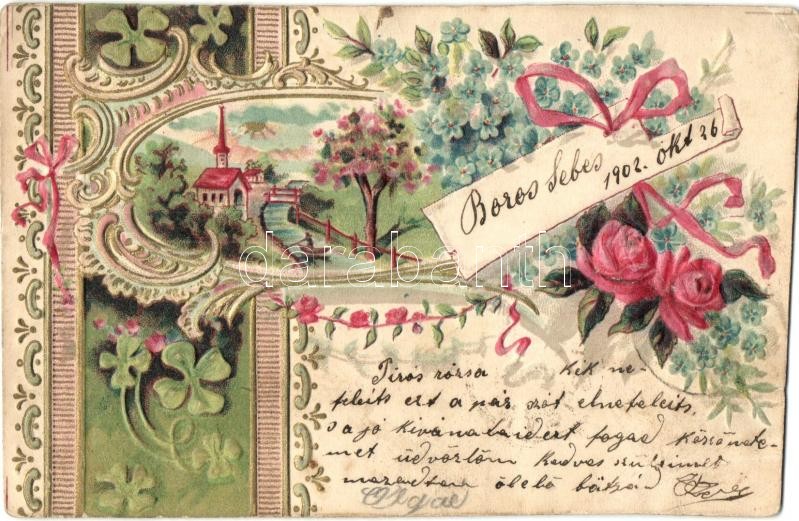 Boros Sebes
1902. okt 26
darabanth
Piros rózsa kék ne-
feleits ezt a pár szót elnefeleits
s a jo kivánataidert fogad köszönete-
met üdvözlöm kedves szüleimet
maradtam ölelő bátyád
Olgae